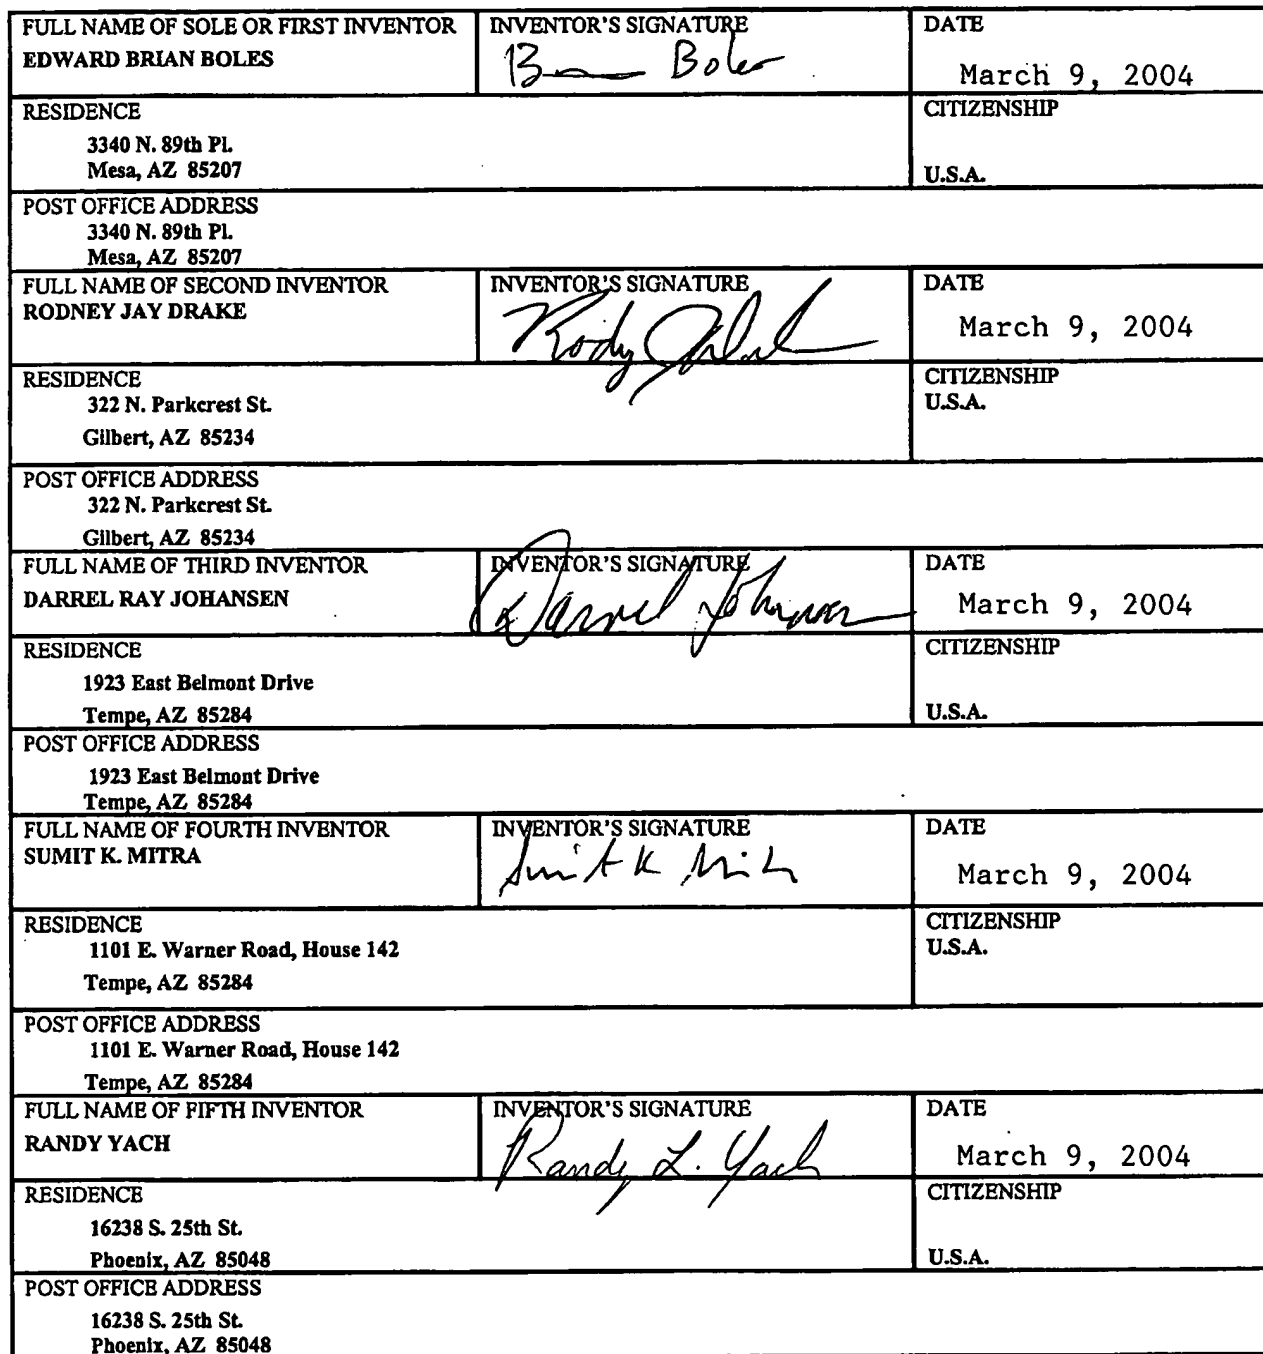 FULL NAME OF SOLE OR FIRST INVENTOR
EDWARD BRIAN BOLES
INVENTOR'S SIGNATURE
B Boles
DATE
March 9, 2004
RESIDENCE
3340 N. 89th Pl.
Mesa, AZ 85207
CITIZENSHIP
U.S.A.
POST OFFICE ADDRESS
3340 N. 89th Pl.
Mesa, AZ 85207
FULL NAME OF SECOND INVENTOR
RODNEY JAY DRAKE
INVENTOR'S SIGNATURE
DATE
March 9, 2004
RESIDENCE
322 N. Parkcrest St.
Gilbert, AZ 85234
CITIZENSHIP
U.S.A.
POST OFFICE ADDRESS
322 N. Parkcrest St.
Gilbert, AZ 85234
FULL NAME OF THIRD INVENTOR
DARREL RAY JOHANSEN
INVENTOR'S SIGNATURE
Darrel Johansen
DATE
March 9, 2004
RESIDENCE
1923 East Belmont Drive
Tempe, AZ 85284
CITIZENSHIP
U.S.A.
POST OFFICE ADDRESS
1923 East Belmont Drive
Tempe, AZ 85284
FULL NAME OF FOURTH INVENTOR
SUMIT K. MITRA
INVENTOR'S SIGNATURE
Sumit K Mitra
DATE
March 9, 2004
RESIDENCE
1101 E. Warner Road, House 142
Tempe, AZ 85284
CITIZENSHIP
U.S.A.
POST OFFICE ADDRESS
1101 E. Warner Road, House 142
Tempe, AZ 85284
FULL NAME OF FIFTH INVENTOR
RANDY YACH
INVENTOR'S SIGNATURE
Randy L. Yach
DATE
March 9, 2004
RESIDENCE
16238 S. 25th St.
Phoenix, AZ 85048
CITIZENSHIP
U.S.A.
POST OFFICE ADDRESS
16238 S. 25th St.
Phoenix, AZ 85048